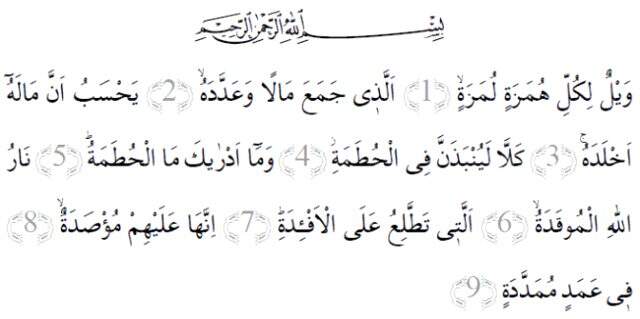 بِسْمِ اللهِ الرَّحْمٰنِ الرَّحِيمِ
وَيْلٌ لِكُلِّ هُمَزَةٍ لُمَزَةٍۙ ﴿1﴾ اَلَّذٖى جَمَعَ مَالًا وَعَدَّدَهُۙ ﴿2﴾ يَحْسَبُ اَنَّ مَالَهُٓ
اَخْلَدَهُۚ ﴿3﴾ كَلَّا لَيُنْبَذَنَّ فِى الْحُطَمَةِۘ ﴿4﴾ وَمَٓا اَدْرٰيكَ مَا الْحُطَمَةُۜ ﴿5﴾ نَارُ
اللهِ الْمُوقَدَةُۙ ﴿6﴾ اَلَّتٖى تَطَّلِعُ عَلَى الْاَفْـِٔدَةِۜ ﴿7﴾ اِنَّهَا عَلَيْهِمْ مُؤْصَدَةٌۙ ﴿8﴾
فٖى عَمَدٍ مُمَدَّدَةٍ ﴿9﴾